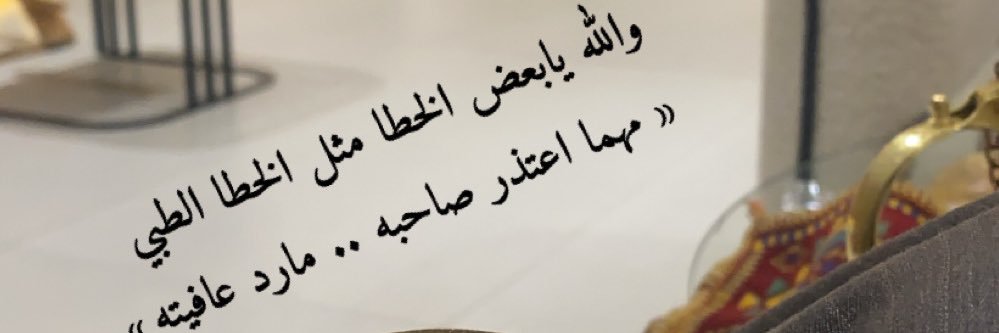 والله يابعض الخطا مثل الخطا الطبي
« مهما اعتذر صاحبه .. مارد عافيته »